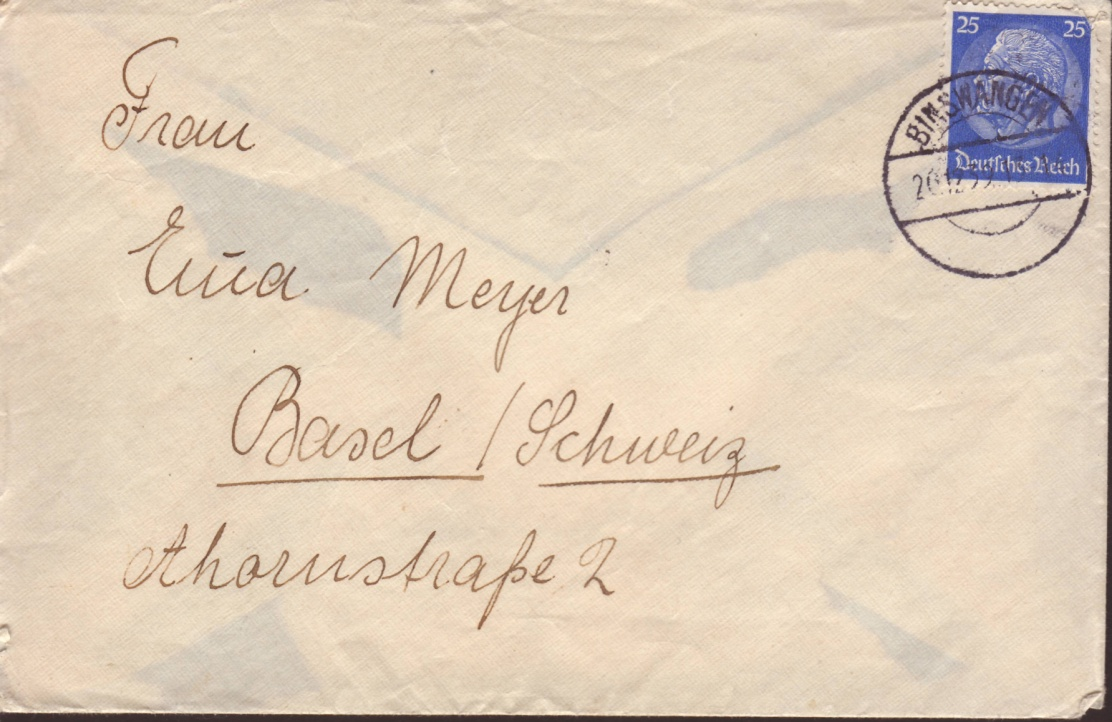 25 25
Deutsches Reich
BINSWANGEN
20.12.39
Frau
Em̄a Meyer
Basel / Schweiz
Ahornstraße 2